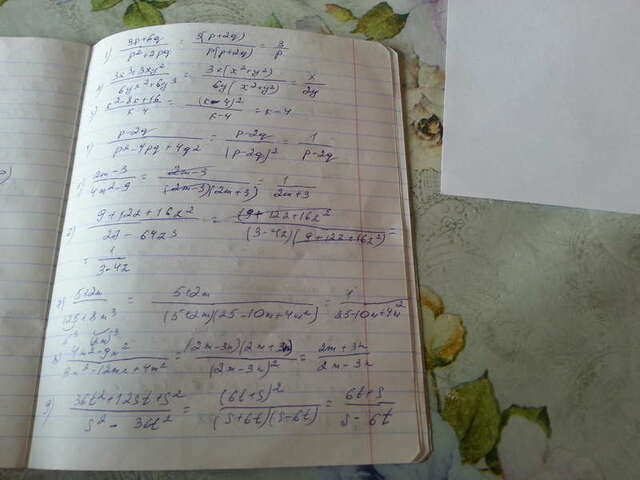 1) (3p+6q)/(p²+2pq) = 3(p+2q)/(p(p+2q)) = 3/p
2) (3x³+3xy²)/(6yx²+6y³) = 3x(x²+y²)/(6y(x²+y²)) = x/2y
3) (k²-8k+16)/(k-4) = (k-4)²/(k-4) = k-4
4) (p-2q)/(p²-4pq+4q²) = (p-2q)/(p-2q)² = 1/(p-2q)
5) (2m-3)/(4m²-9) = (2m-3)/((2m-3)(2m+3)) = 1/(2m+3)
6) (9+12z+16z²)/(27-64z3) = (9+12z+16z²)/((3-4z)(9+12z+16z²)) =
= 1/(3-4z)
7) (5+2m)/(125+8m³) = (5+2m)/((5+2m)(25-10m+4m²)) = 1/(25-10m+4m²)
5³ (2m)³
8) (4m²-9n²)/(9n²-12mn+4m²) = (2m-3n)(2m+3n)/(2m-3n)² = (2m+3n)/(2m-3n)
9) (36t²+12st+s²)/(s²-36t²) = (6t+s)²/((s+6t)(s-6t)) = (6t+s)/(s-6t)